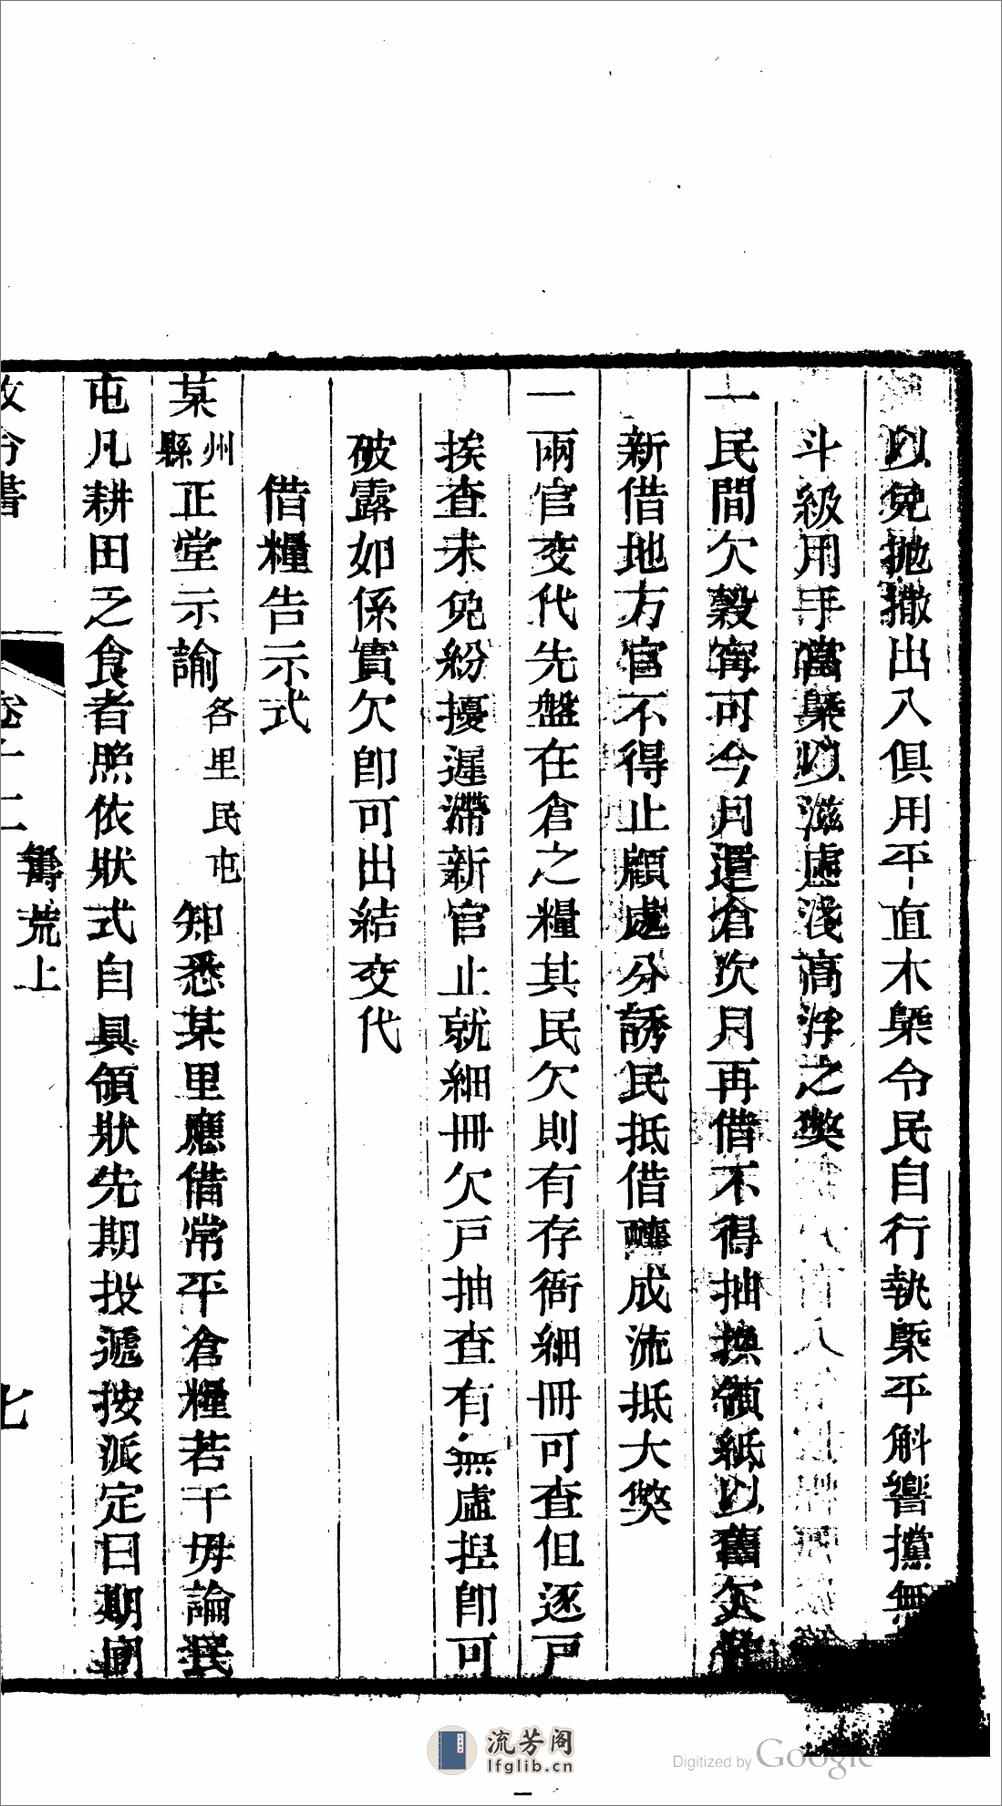 以免拋撒出入俱用平直木槩令民自行執槩平斛響攩無
斗級用手當槩以滋虛淺高浮之獘
一民間欠穀寗可今月還倉次月再借不得抽換領紙以舊欠作
新借地方官不得止顧處分誘民抵借釀成流抵大獘
一兩官交代先盤在倉之糧其民欠則有存衙細冊可查但逐戶
挨查未免紛擾遲滯新官止就細冊欠戶抽查有無虛揑卽可
破露如係實欠卽可出結交代
借糧告示式
某州縣正堂示諭各里民屯知悉某里應借常平倉糧若干毋論民
屯凡耕田之食者照依狀式自具領狀先期投遞按派定日期同
牧令書 卷十二 籌荒上 七
流芳阁
lfglib.cn
Digitized by Google